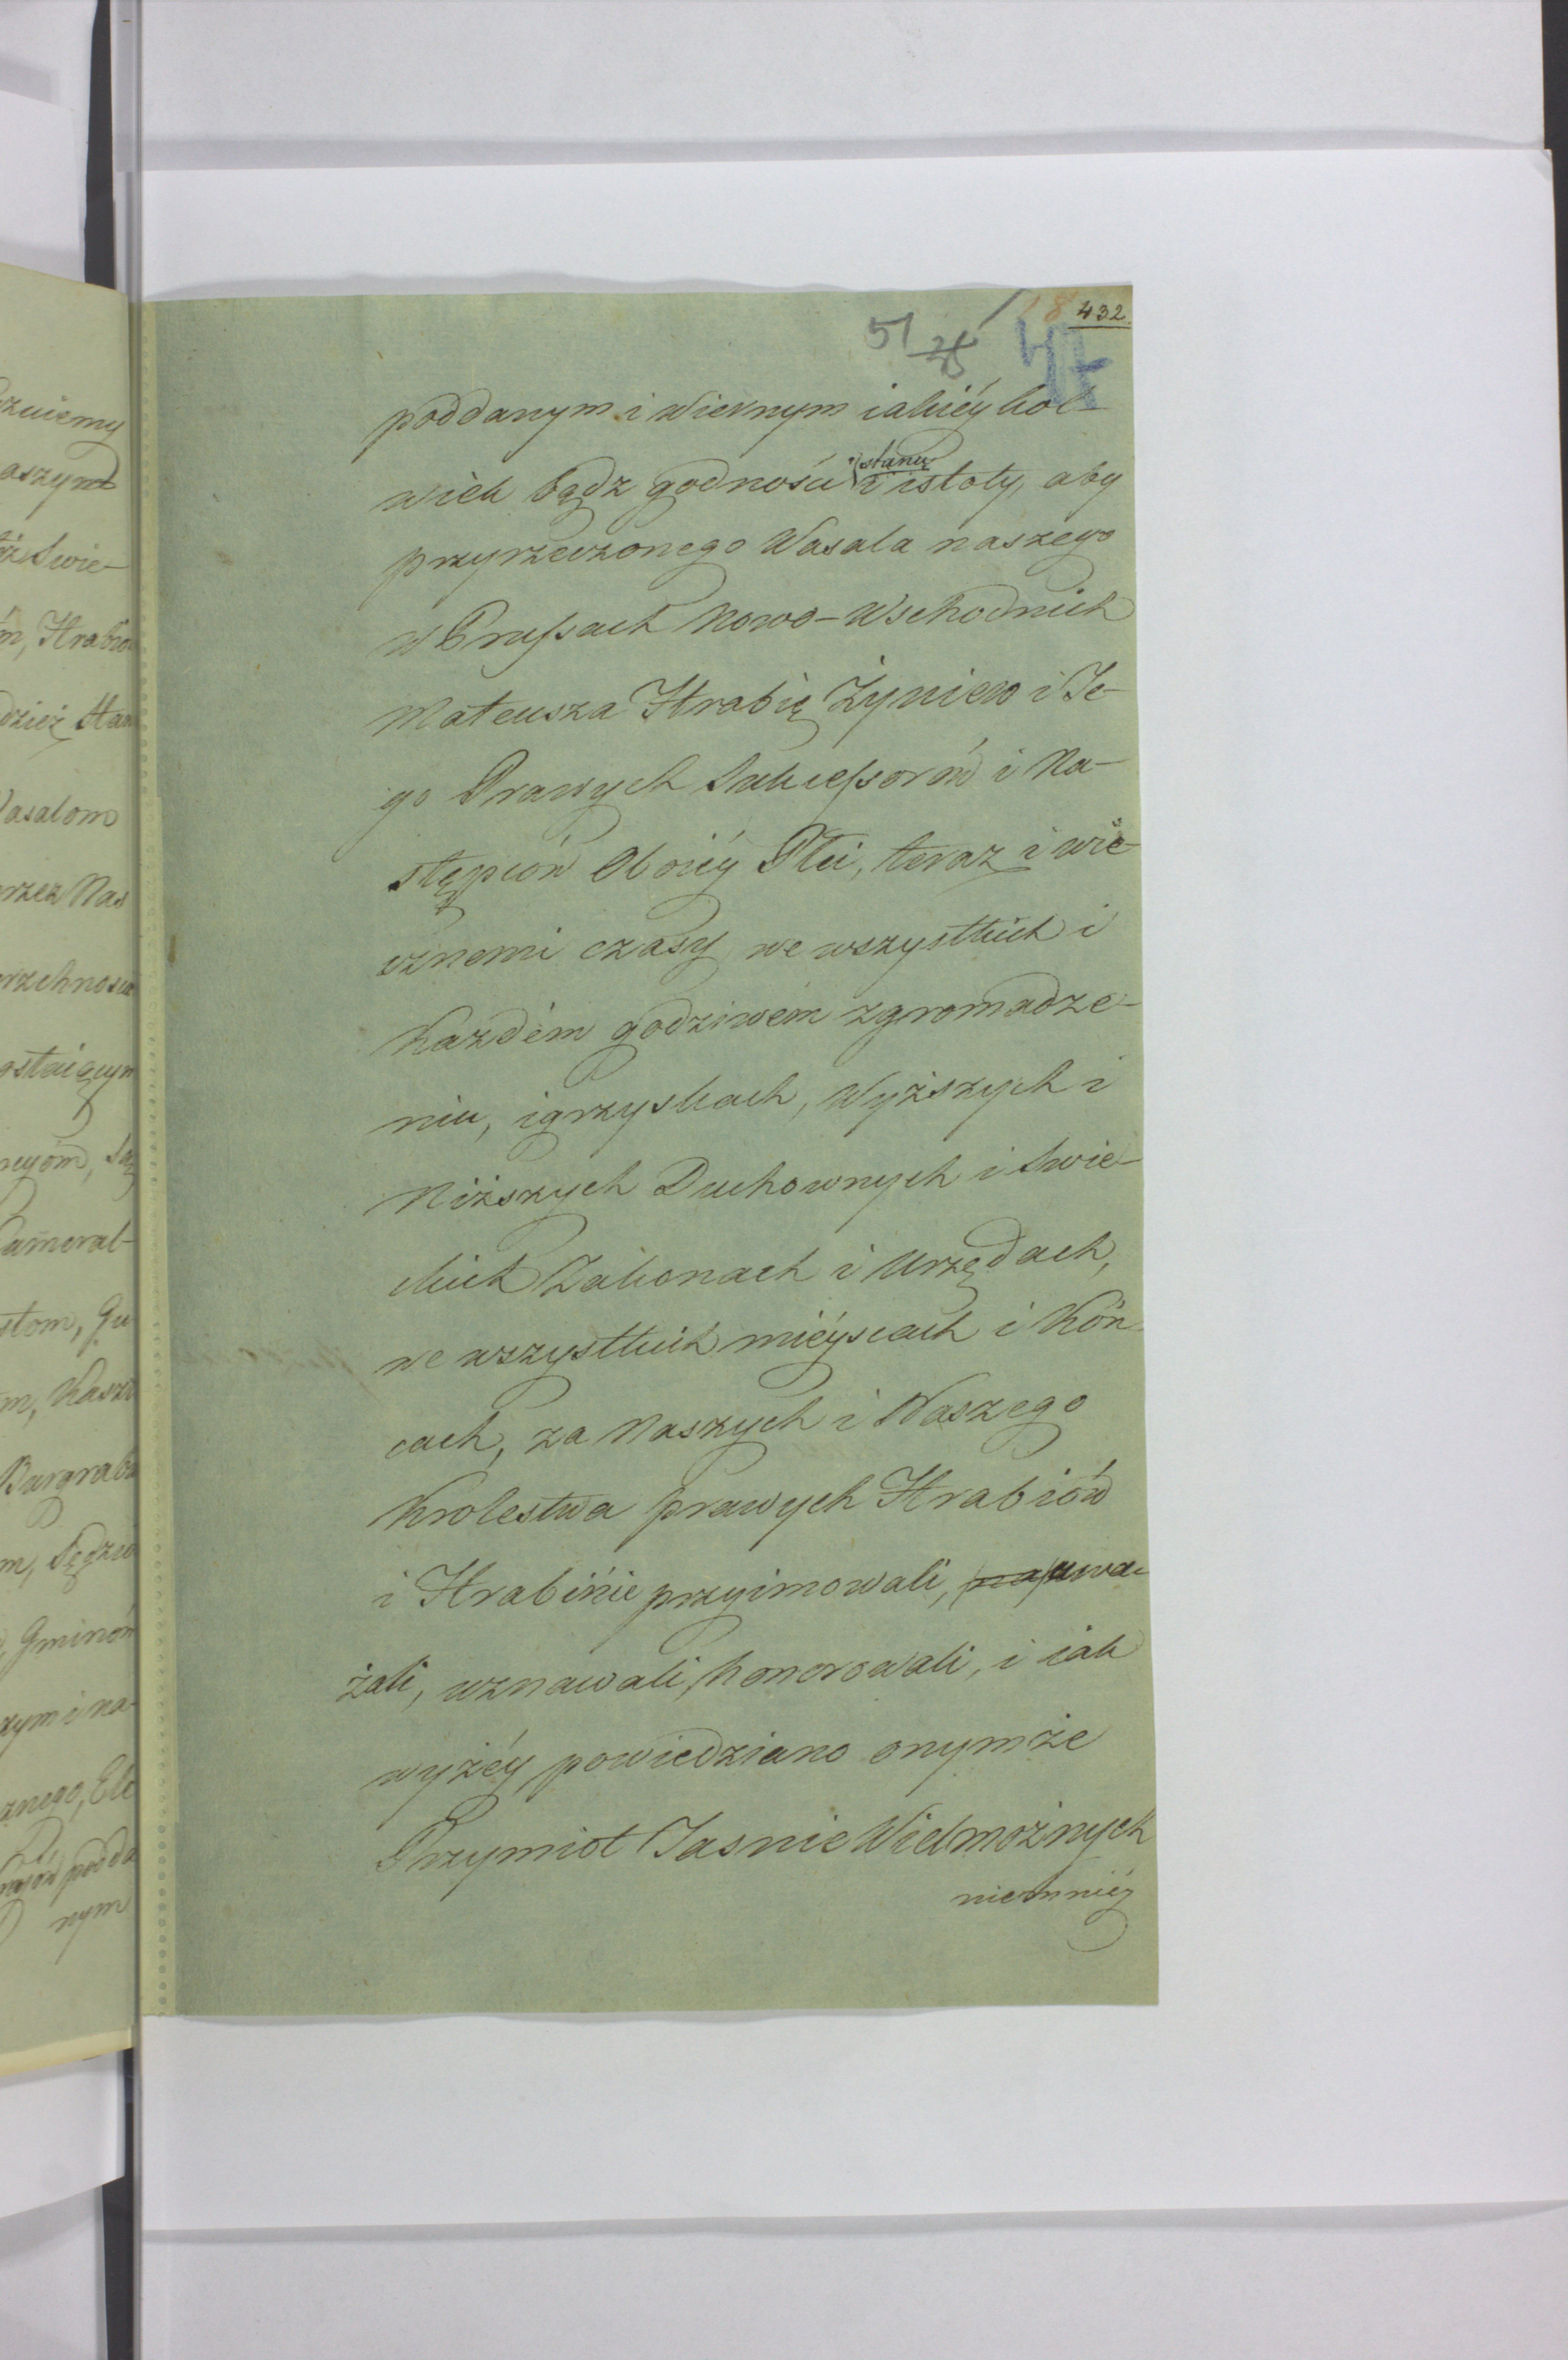 432
51
poddanym i wiernym iakiéy kol-
wiek bądz godności stanu i istoty, aby
przyrzeczonego Wasala naszego
w Prussach Nowo-Wschodnich
Mateusza Hrabię Żyniew i Je-
go Prawych Sukcessorów i Na-
stępców Oboiéy Płci, teraz i wie-
cznemi czasy we wszystkich i
każdém godziwém zgromadze-
niu, igrzyskach, Wyższych i
Niższych Duchownych i Swie-
ckich Zakonach i Urzędach,
we wszystkich mieyscach i Kön-
cach, za Naszych i Naszego
Krolestwa prawych Hrabiów
i Hrabinie przyimowali, uwa-
żali, uznawali, honorowali, i iak
wyżéy powiedziano onymże
Przymiot Jasnie Wielmożnych
niemniéy
aszym
Swie-
m, Hrabiow
Wasalom
przez Nas
Cameral-
Burgrabio
m, Sędzio
Gminom
zym i na-
znego, Ele
podda
nym